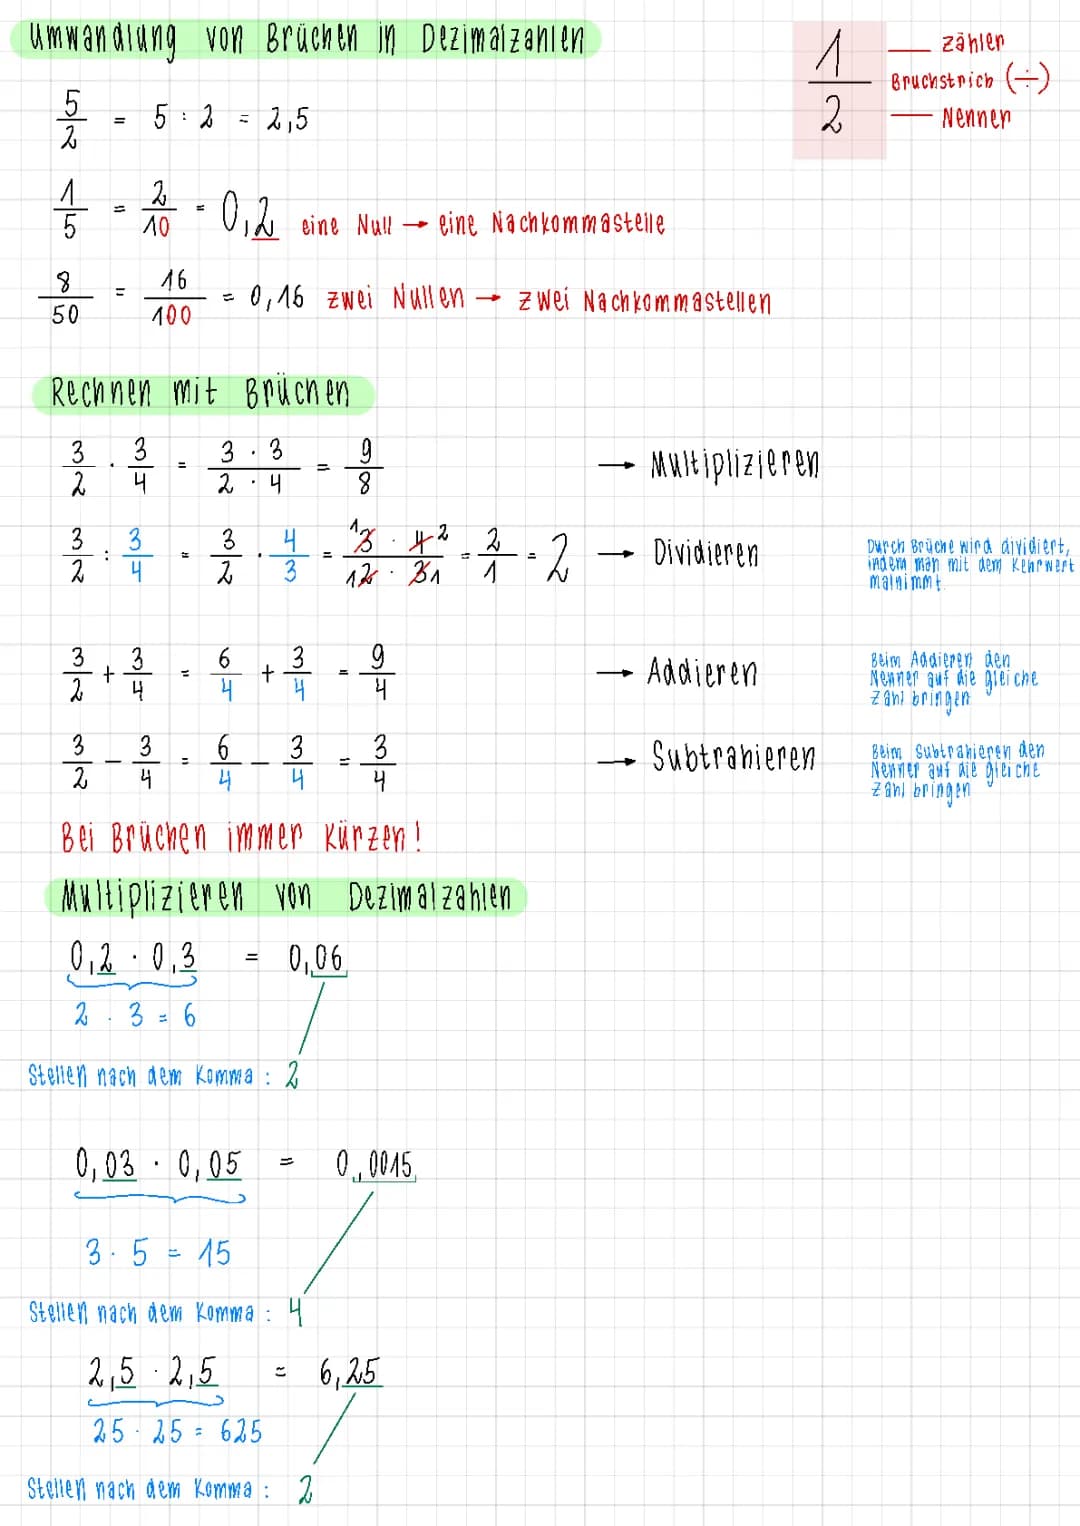 Umwandlung von Brüchen in Dezimalzahlen
1/2
Zähler
Bruchstrich (÷)
Nenner
5/2 = 5 : 2 = 2,5
1/5 = 2/10 = 0,2 eine Null → eine Nachkommastelle
8/50 = 16/100 = 0,16 zwei Nullen → zwei Nachkommastellen
Rechnen mit Brüchen
3/2 · 3/4 = 3 · 3 / 2 · 4 = 9/8 → Multiplizieren
3/2 : 3/4 = 3/2 · 4/3 = ¹3 · 4² / ₁2 · 3₁ = 2/1 = 2 → Dividieren
Durch Brüche wird dividiert,
indem man mit dem Kehrwert
malnimmt.
3/2 + 3/4 = 6/4 + 3/4 = 9/4 → Addieren
Beim Addieren den
Nenner auf die gleiche
Zahl bringen
3/2 - 3/4 = 6/4 - 3/4 = 3/4 → Subtrahieren
Beim Subtrahieren den
Nenner auf die gleiche
Zahl bringen
Bei Brüchen immer Kürzen!
Multiplizieren von Dezimalzahlen
0,2 · 0,3 = 0,06
2 · 3 = 6
Stellen nach dem Komma : 2
0,03 · 0,05 = 0,0015
3 · 5 = 15
Stellen nach dem Komma : 4
2,5 · 2,5 = 6,25
25 · 25 = 625
Stellen nach dem Komma : 2